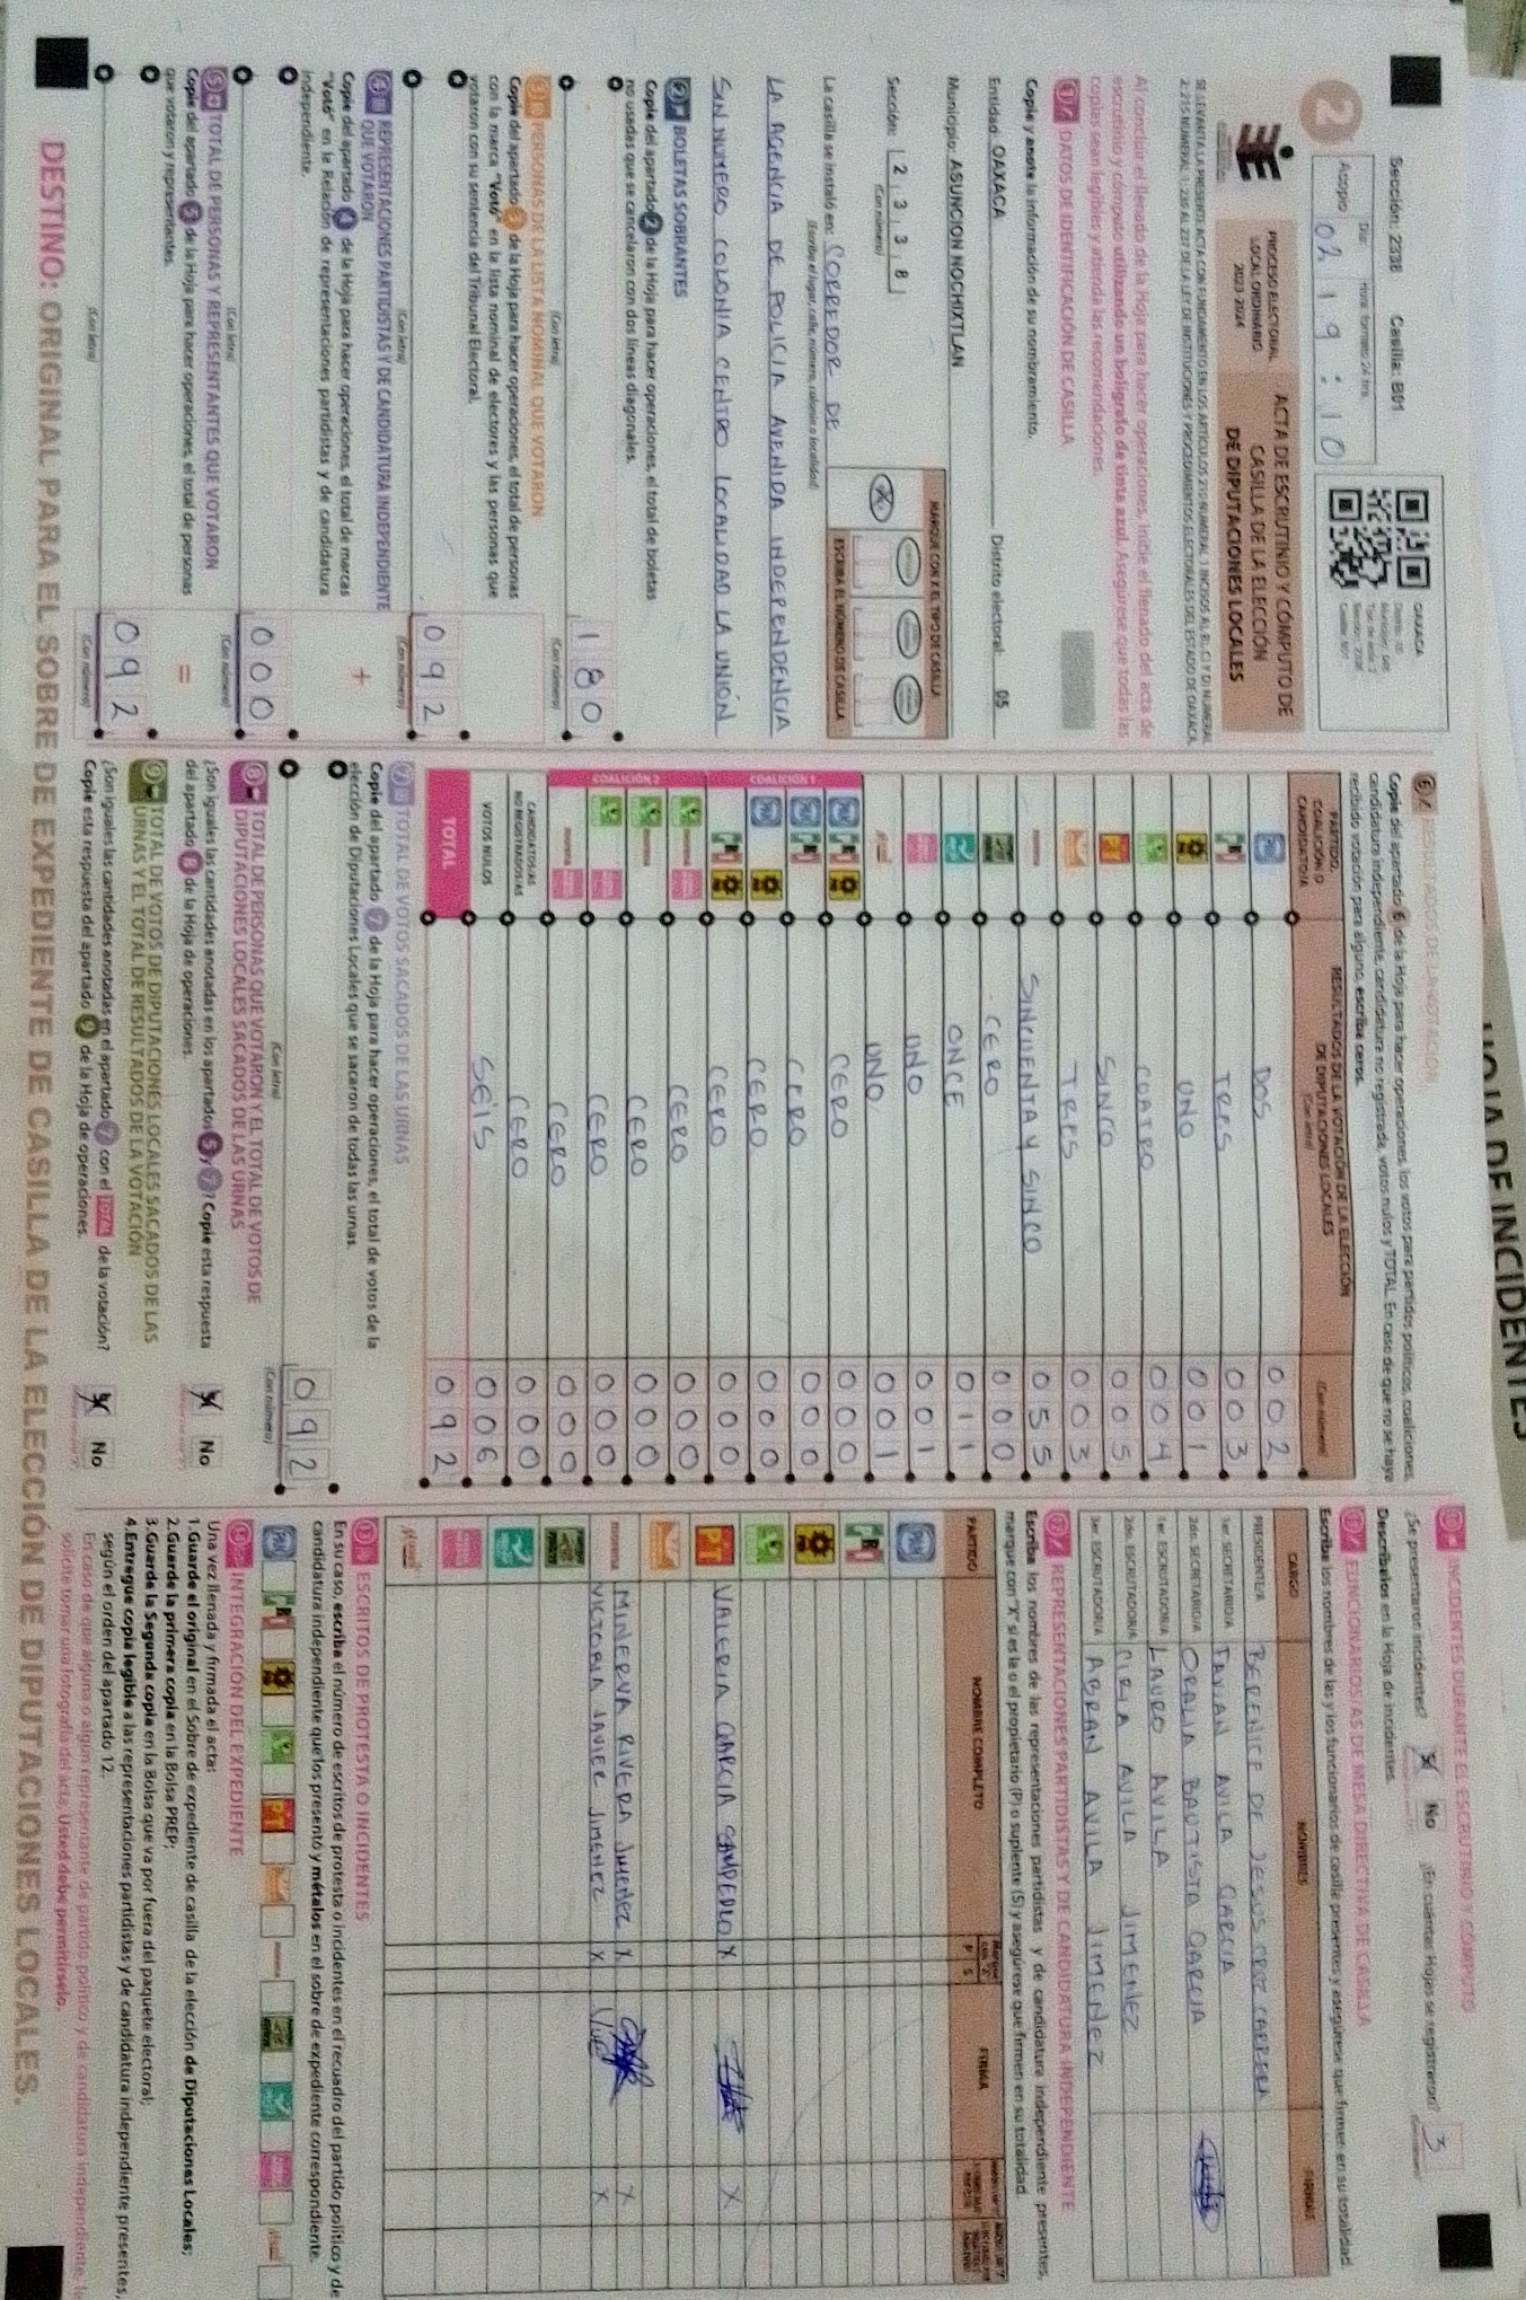 HOJA DE INCIDENTES
Sección: 2338 Casilla: B01
2
Día: Hora: formato 24 hrs.
Acopio 02 19:10
OAXACA
PROCESO ELECTORAL
LOCAL ORDINARIO
2023-2024
ACTA DE ESCRUTINIO Y CÓMPUTO DE
CASILLA DE LA ELECCIÓN
DE DIPUTACIONES LOCALES
Al concluir el llenado de la Hoja para hacer operaciones, inicie el llenado del acta de
escrutinio y cómputo utilizando un bolígrafo de tinta azul. Asegúrese que todas las
copias sean legibles y atienda las recomendaciones.
1 DATOS DE IDENTIFICACIÓN DE CASILLA
Copie y anote la información de su nombramiento.
Entidad OAXACA Distrito electoral: 05
Municipio: ASUNCION NOCHIXTLAN
Sección: 2 3 3 8
(Con número)
MARQUE CON X EL TIPO DE CASILLA
ESCRIBA EL NÚMERO DE CASILLA
La casilla se instaló en: CORREDOR DE
(Escriba el lugar, calle, número, colonia o localidad)
LA AGENCIA DE POLICIA AVENIDA INDEPENDENCIA
SIN NUMERO COLONIA CENTRO LOCALIDAD LA UNIÓN
2 BOLETAS SOBRANTES
Copie del apartado 2 de la Hoja para hacer operaciones, el total de boletas
no usadas que se cancelaron con dos líneas diagonales.
180
(Con letra) (Con número)
3 PERSONAS DE LA LISTA NOMINAL QUE VOTARON
Copie del apartado 3 de la Hoja para hacer operaciones, el total de personas
con la marca "Votó" en la lista nominal de electores y las personas que
votaron con su sentencia del Tribunal Electoral.
092
(Con letra) (Con número)
+
4 REPRESENTACIONES PARTIDISTAS Y DE CANDIDATURA INDEPENDIENTE
QUE VOTARON
Copie del apartado 4 de la Hoja para hacer operaciones, el total de marcas
"Votó" en la Relación de representaciones partidistas y de candidatura
independiente.
000
(Con letra) (Con número)
=
5 TOTAL DE PERSONAS Y REPRESENTANTES QUE VOTARON
Copie del apartado 5 de la Hoja para hacer operaciones, el total de personas
que votaron y representantes.
092
(Con letra) (Con número)
6 RESULTADOS DE LA VOTACIÓN
Copie del apartado 6 de la Hoja para hacer operaciones, los votos para partidos políticos, coaliciones,
candidatura independiente, candidatura no registrada, votos nulos y TOTAL. En caso de que no se haya
recibido votación para alguno, escriba ceros.
PARTIDO,
COALICIÓN O
CANDIDATO/A
RESULTADOS DE LA VOTACIÓN DE LA ELECCIÓN
DE DIPUTACIONES LOCALES
(Con letra)
(Con número)
PAN DOS 002
PRI TRES 003
UNO 001
CUATRO 004
PT SINCO 005
TRES 003
SINCUENTA Y SINCO 055
CERO 000
ONCE 011
UNO 001
UNO 001
COALICIÓN 1
CERO 000
CERO 000
CERO 000
CERO 000
COALICIÓN 2
CERO 000
CERO 000
CERO 000
CERO 000
CANDIDATOS/AS
NO REGISTRADOS/AS CERO 000
VOTOS NULOS SEIS 006
TOTAL 092
7 TOTAL DE VOTOS SACADOS DE LAS URNAS
Copie del apartado 7 de la Hoja para hacer operaciones, el total de votos de la
elección de Diputaciones Locales que se sacaron de todas las urnas.
092
(Con letra) (Con número)
8 TOTAL DE PERSONAS QUE VOTARON Y EL TOTAL DE VOTOS DE
DIPUTACIONES LOCALES SACADOS DE LAS URNAS
¿Son iguales las cantidades anotadas en los apartados 5 y 7? Copie esta respuesta
del apartado 8 de la Hoja de operaciones.
Sí No
9 TOTAL DE VOTOS DE DIPUTACIONES LOCALES SACADOS DE LAS
URNAS Y EL TOTAL DE RESULTADOS DE LA VOTACIÓN
¿Son iguales las cantidades anotadas en el apartado 7 con el TOTAL de la votación?
Copie esta respuesta del apartado 9 de la Hoja de operaciones.
Sí No
10 INCIDENTES DURANTE EL ESCRUTINIO Y CÓMPUTO
¿Se presentaron incidentes? Sí No ¿En cuántas Hojas se registraron? 3
Descríbalos en la Hoja de incidentes.
11 FUNCIONARIOS/AS DE MESA DIRECTIVA DE CASILLA
Escriba los nombres de las y los funcionarios de casilla presentes y asegúrese que firmen en su totalidad.
CARGO NOMBRES FIRMAS
PRESIDENTE/A BERENICE DE JESUS CRUZ CABRERA
1er. SECRETARIO/A FAVIAN AVILA GARCIA
2do. SECRETARIO/A ORALIA BAUTISTA GARCIA
1er. ESCRUTADOR/A LAURO AVILA
2do. ESCRUTADOR/A CIRIA AVILA JIMENEZ
3er. ESCRUTADOR/A ABRAN AVILA JIMENEZ
12 REPRESENTACIONES PARTIDISTAS Y DE CANDIDATURA INDEPENDIENTE
Escriba los nombres de las representaciones partidistas y de candidatura independiente presentes,
marque con "X" si es la o el propietario (P) o suplente (S) y asegúrese que firmen en su totalidad.
PARTIDO NOMBRE COMPLETO P S FIRMA
PAN
PRI
PT VALERIA GARCIA SAMPEDRO X X
MINERVA RIVERA JIMENEZ X X
VICTORIA JAVIER JIMENEZ X X
13 ESCRITOS DE PROTESTA O INCIDENTES
En su caso, escriba el número de escritos de protesta o incidentes en el recuadro del partido político y de
candidatura independiente que los presentó y métalos en el sobre de expediente de casilla correspondiente.
14 INTEGRACIÓN DEL EXPEDIENTE
Una vez llenada y firmada el acta:
1.Guarde el original en el Sobre de expediente de casilla de la elección de Diputaciones Locales;
2.Guarde la primera copia en la Bolsa PREP;
3.Guarde la Segunda copia en la Bolsa que va por fuera del paquete electoral;
4.Entregue copia legible a las representaciones partidistas y de candidatura independiente presentes,
según el orden del apartado 12.
En caso de que alguna o algún representante de partido político y de candidatura independiente, le
solicite tomar una fotografía del acta, Usted debe permitírselo.
DESTINO: ORIGINAL PARA EL SOBRE DE EXPEDIENTE DE CASILLA DE LA ELECCIÓN DE DIPUTACIONES LOCALES.